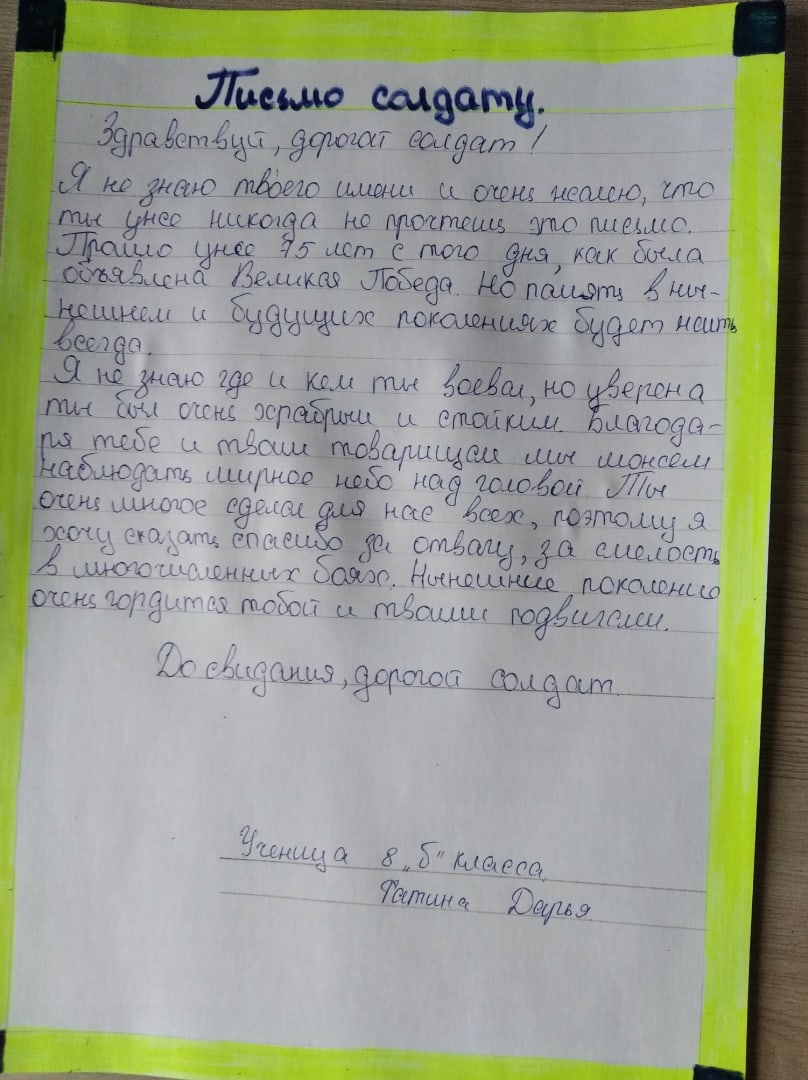 Письмо солдату.
Здравствуй, дорогой солдат!
Я не знаю твоего имени и очень жалею, что
ты уже никогда не прочтешь это письмо.
Прошло уже 75 лет с того дня, как была
объявлена Великая Победа. Но память в ны-
нешнем и будущих поколениях будет жить
всегда.
Я не знаю где и кем ты воевал, но уверена
ты был очень храбрым и стойким. Благода-
ря тебе и твоим товарищам мы можем
наблюдать мирное небо над головой. Ты
очень многое сделал для нас всех, поэтому я
хочу сказать спасибо за отвагу, за смелость
в многочисленных боях. Нынешние поколению
очень гордится тобой и твоими подвигами.
До свидания, дорогой солдат.
Ученица 8 „Б" класса
Фатина Дарья